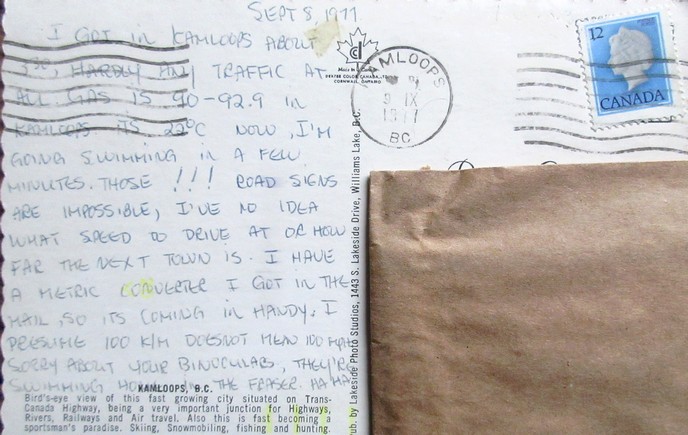 SEPT 8, 1977.
I GOT IN KAMLOOPS ABOUT
HARDLY ANY TRAFFIC AT
ALL GAS IS 90-92.9 IN
KAMLOOPS ITS 22°C NOW, I'M
GOING SWIMMING IN A FEW
MINUTES. THOSE !!! ROAD SIGNS
ARE IMPOSSIBLE, I'VE NO IDEA
WHAT SPEED TO DRIVE AT OR HOW
FAR THE NEXT TOWN IS. I HAVE
A METRIC CONVERTER I GOT IN THE
MAIL, SO ITS COMING IN HANDY. I
PRESUME 100 K/M DOESNOT MEAN 100 MPH
SORRY ABOUT YOUR BINOCULARS, THEY'RE
SWIMMING IN THE FRASER. HA HA
KAMLOOPS, B.C.
Bird's-eye view of this fast growing city situated on Trans-
Canada Highway, being a very important junction for Highways,
Rivers, Railways and Air travel. Also this is fast becoming a
sportsman's paradise. Skiing, Snowmobiling, fishing and hunting.
Made in Canada
DEXTER COLOR CANADA
CORNWALL, ONTARIO
Pub. by Lakeside Photo Studios, 1443 S. Lakeside Drive, Williams Lake, B.C.
KAMLOOPS
9 IX
1977
BC
12
CANADA